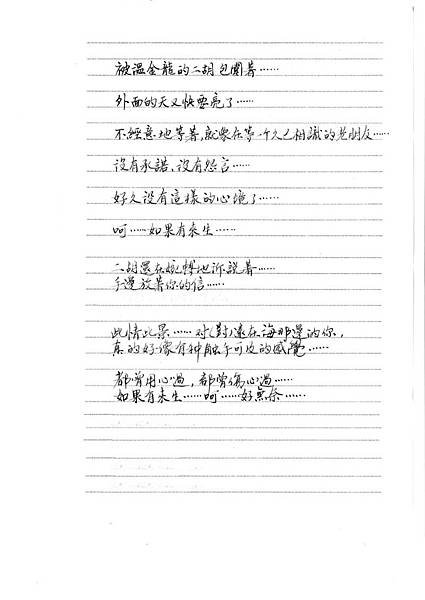 被溫金龍的二胡包圍著……
外面的天又快要亮了……
不經意地等著,就象在等一个久已相識的老朋友……
沒有承諾、沒有怨言……
好久沒有這樣的心境了……
呵……如果有来生……
二胡還在婉轉地訴說著……
手邊放著你的信……
此情此景……对(對)遠在海那邊的你,
真的好像有种触手可及的感覺……
都曾用心過,都曾傷心過……
如果有来生……呵……好無奈……